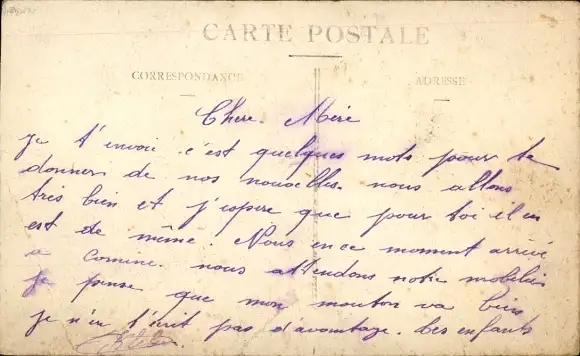 CARTE POSTALE
CORRESPONDANCE
ADRESSE
Chere Mère
Je t'envoie c'est quelques mots pour te
donner de nos nouvelles. nous allons
très bien et j'espere que pour toi il en
est de même. Nous en ce moment arrivé
a Comine. nous attendons notre mobilier
je pense que mon mouton va bien
je n'en t'écrit pas d'avantage. Les enfants